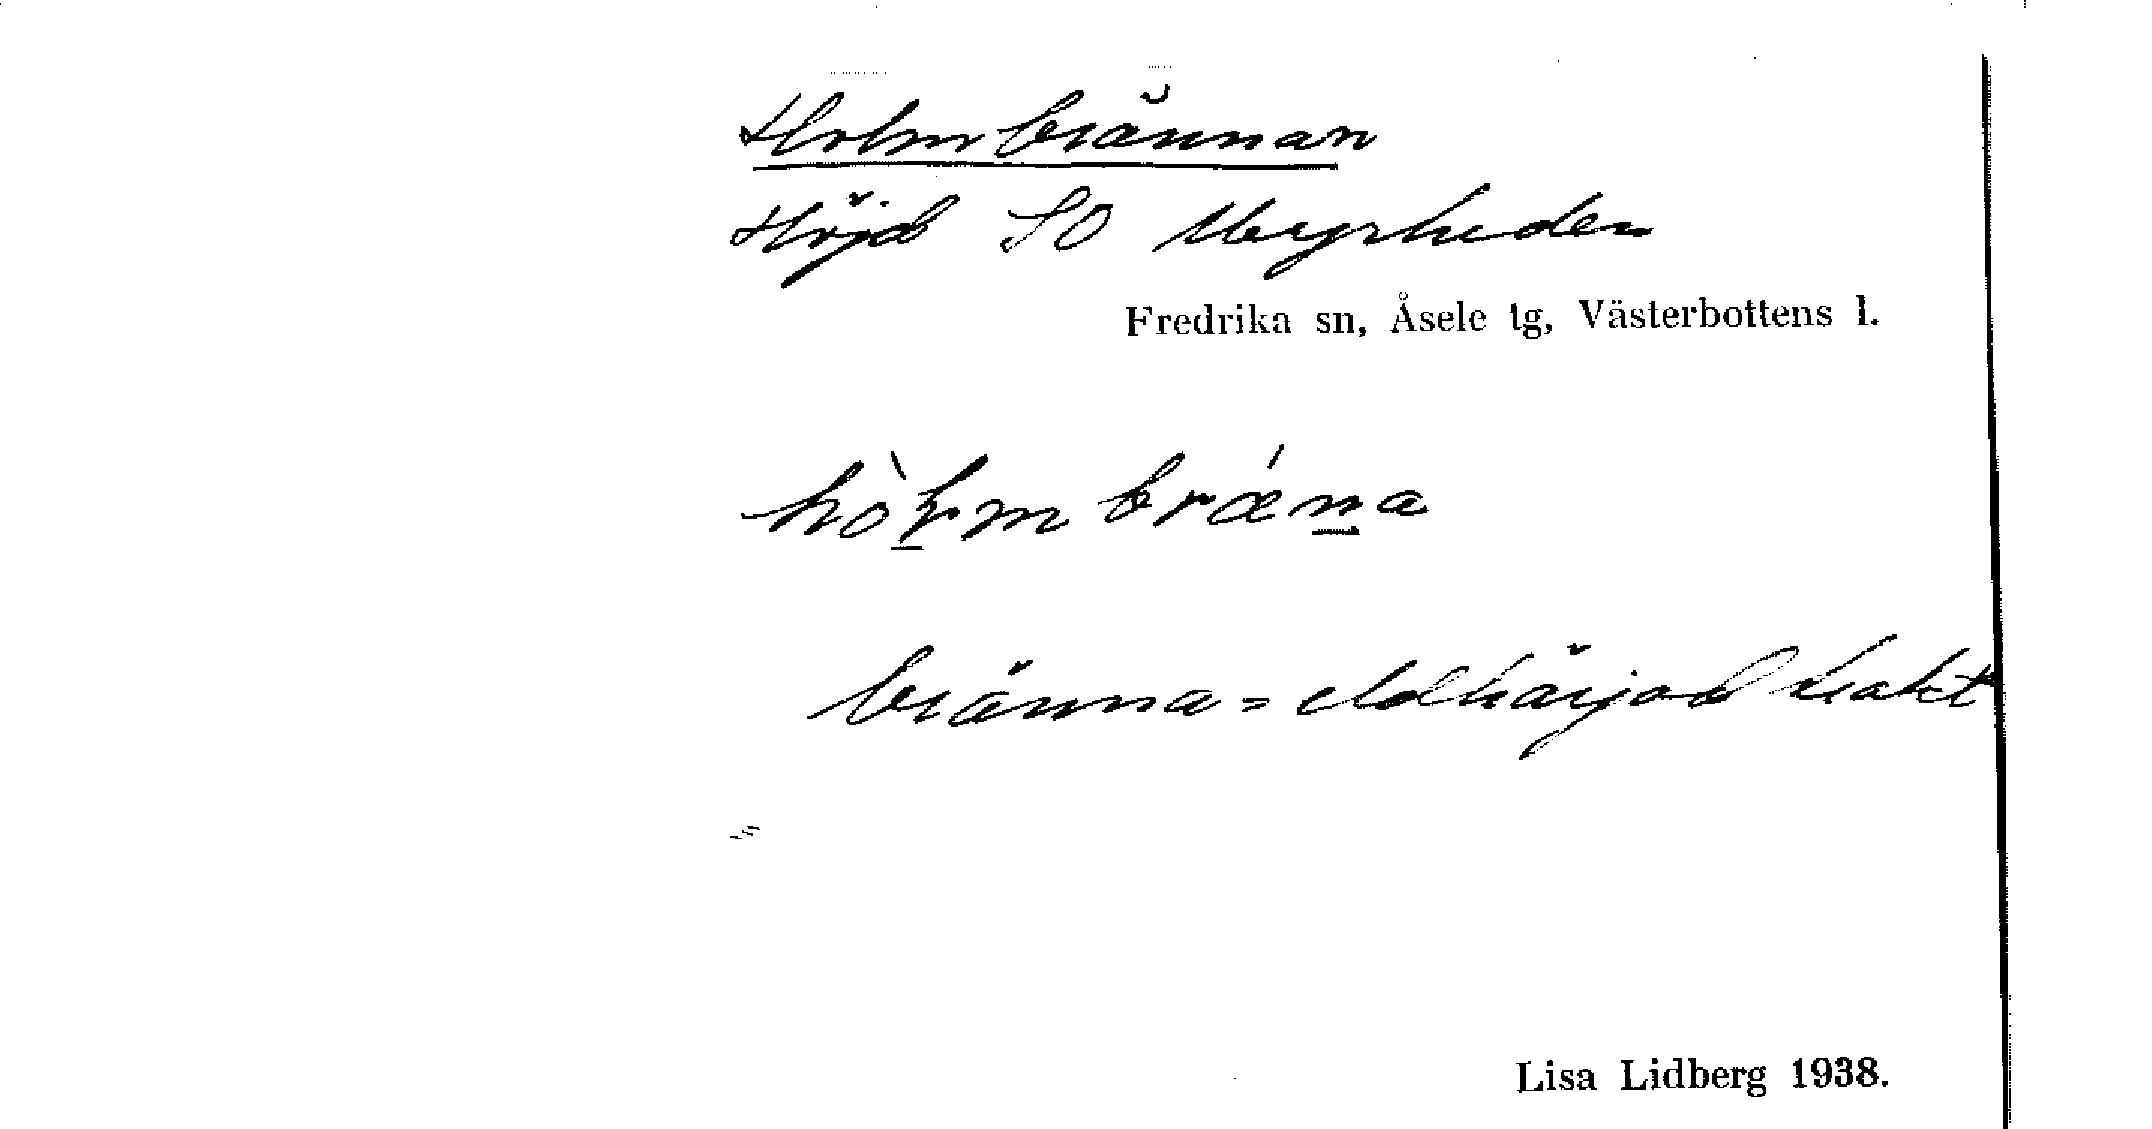 Holmbrännan
Höjd SO Bergsheden
Fredrika sn, Åsele tg, Västerbottens l.
bränna = eldhärjad trakt
Lisa Lidberg 1938.